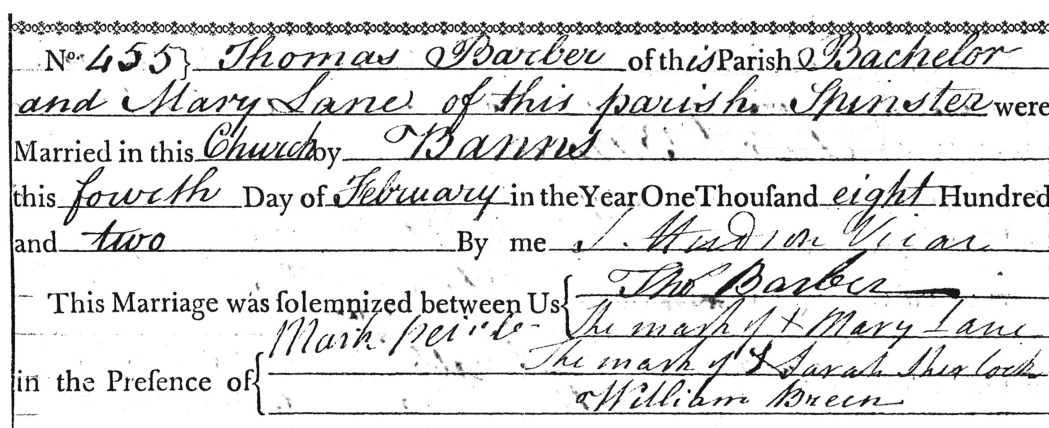 No. 455} Thomas Barber of this Parish Bachelor
and Mary Lane of this parish Spinster were
Married in this Church by Banns
this fourth Day of February in the Year One Thouſand eight Hundred
and two By me J. Hudson Vicar
This Marriage was ſolemnized between Us { Thos Barber
The mark of X Mary Lane
Mark
in the Preſence of { The mark of X Sarah Sherlock
William Breen